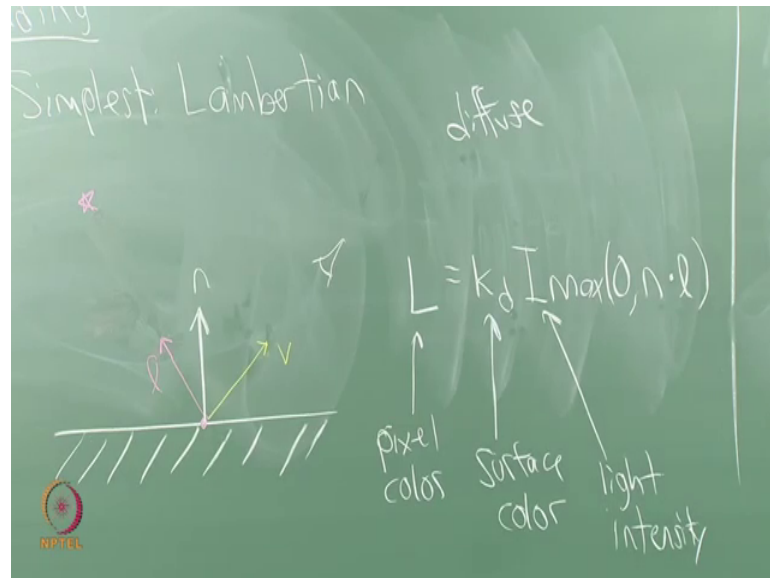 ding
Simplest: Lambertian
diffuse
n
l
v
L = k_d I max(0, n · l)
pixel
color
surface
color
light
intensity
NPTEL